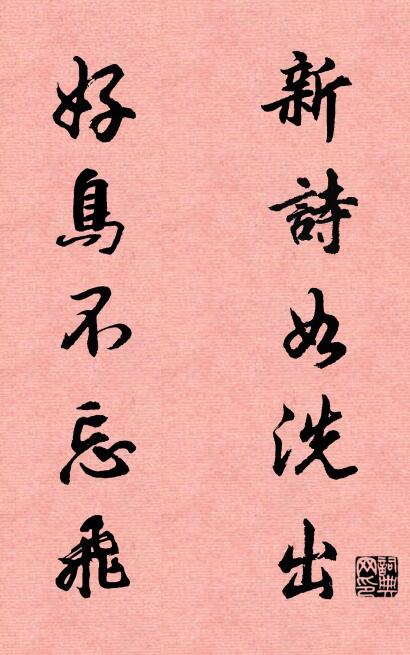 新詩如洗出
好鳥不忘飛
詞典網印